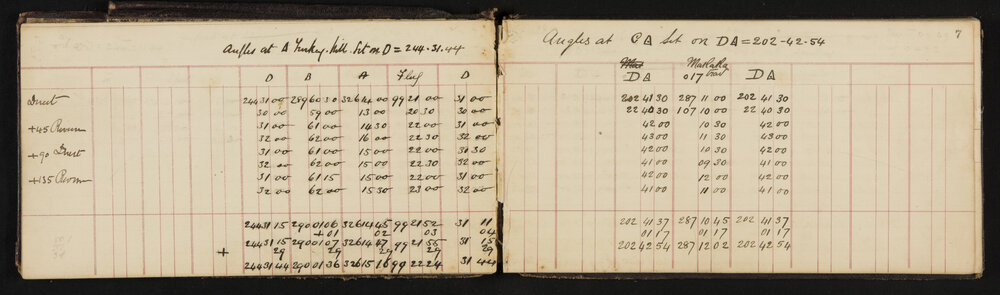 Angles at A Turkey Hill Set on D = 244.31.44
D B A Flag D
Direct 244 31 00 289 60 30 326 14 00 99 21 00 31 00
30 00 59 00 13 00 20 30 30 00
+45 Reverse 31 00 61 00 14 30 22 00 31 00
32 00 62 00 16 00 22 30 32 00
+90 Direct 31 00 61 00 15 00 22 00 30 30
32 00 62 00 15 00 22 30 32 00
+135 Reverse 31 00 61 15 15 00 22 00 31 00
32 00 62 00 15 30 23 00 32 00
244 31 15 290 01 06 326 14 45 99 21 52 31 11
+01 02 03 04
244 31 15 290 01 07 326 14 47 99 21 55 31 15
+ 29 29 29 29 29
244 31 44 290 01 36 326 15 16 99 22 24 31 44
7
Angles at C △ Set on D △ = 202-42-54
D △ 017 D △
202 41 30 287 11 00 202 41 30
22 40 30 107 10 00 22 40 30
42 00 10 30 42 00
43 00 11 30 43 00
42 00 10 30 42 00
41 00 09 30 41 00
42 00 12 00 42 00
41 00 11 00 41 00
202 41 37 287 10 45 202 41 37
01 17 01 17 01 17
202 42 54 287 12 02 202 42 54